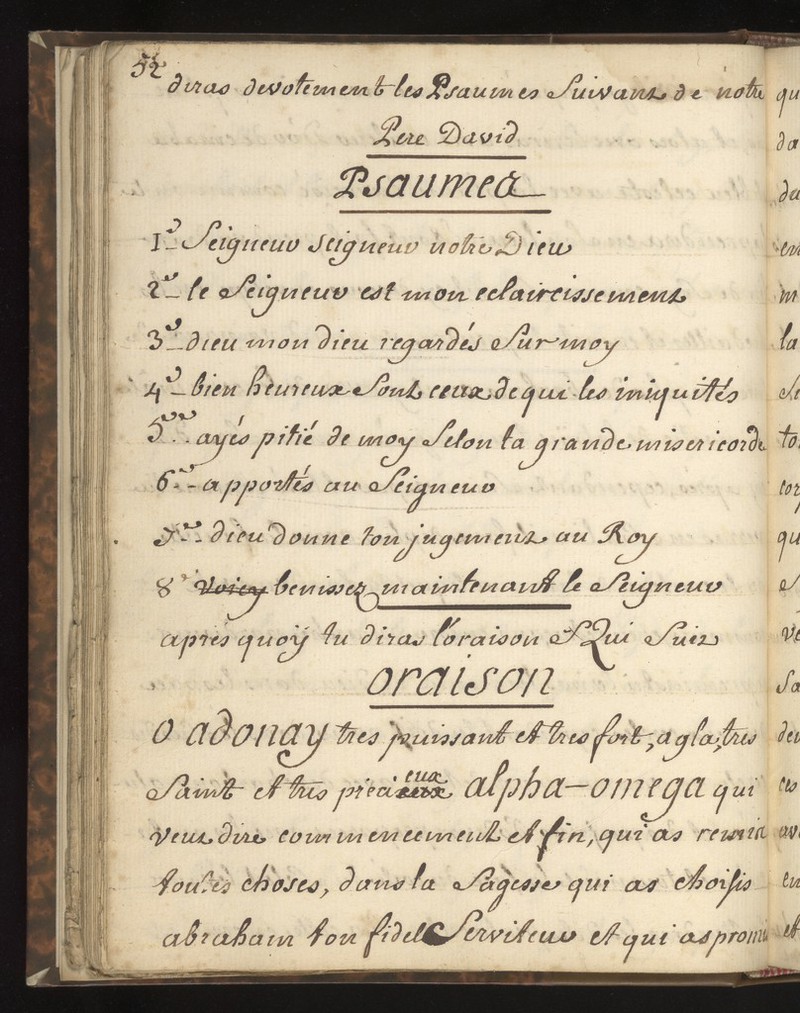 52
diras devotement les Psaumes Suivant de notre
Pere David
Psaumes
1er Seigneur seigneur notre Dieu
2e le Seigneur est mon eclaircissement
3e dieu mon dieu regardés Sur moy
4e bien heureux Sont ceux de qui les iniquités
5e ayés pitié de moy Selon ta grande misericorde
6e apportés au Seigneur
7e dieu donne ton jugement au Roy
8e voicy benissez maintenant le Seigneur
aprés quoÿ tu diras l'oraison Qui Suit
oraison
O adonay tres puissant et tres fort, agla, tres
eux
Saint et tres preci alpha-omega qui
veut dire commencement et fin, qui as
toutes choses, dans la Sagesse qui as choisis
abraham ton fidel Serviteur et qui as promis